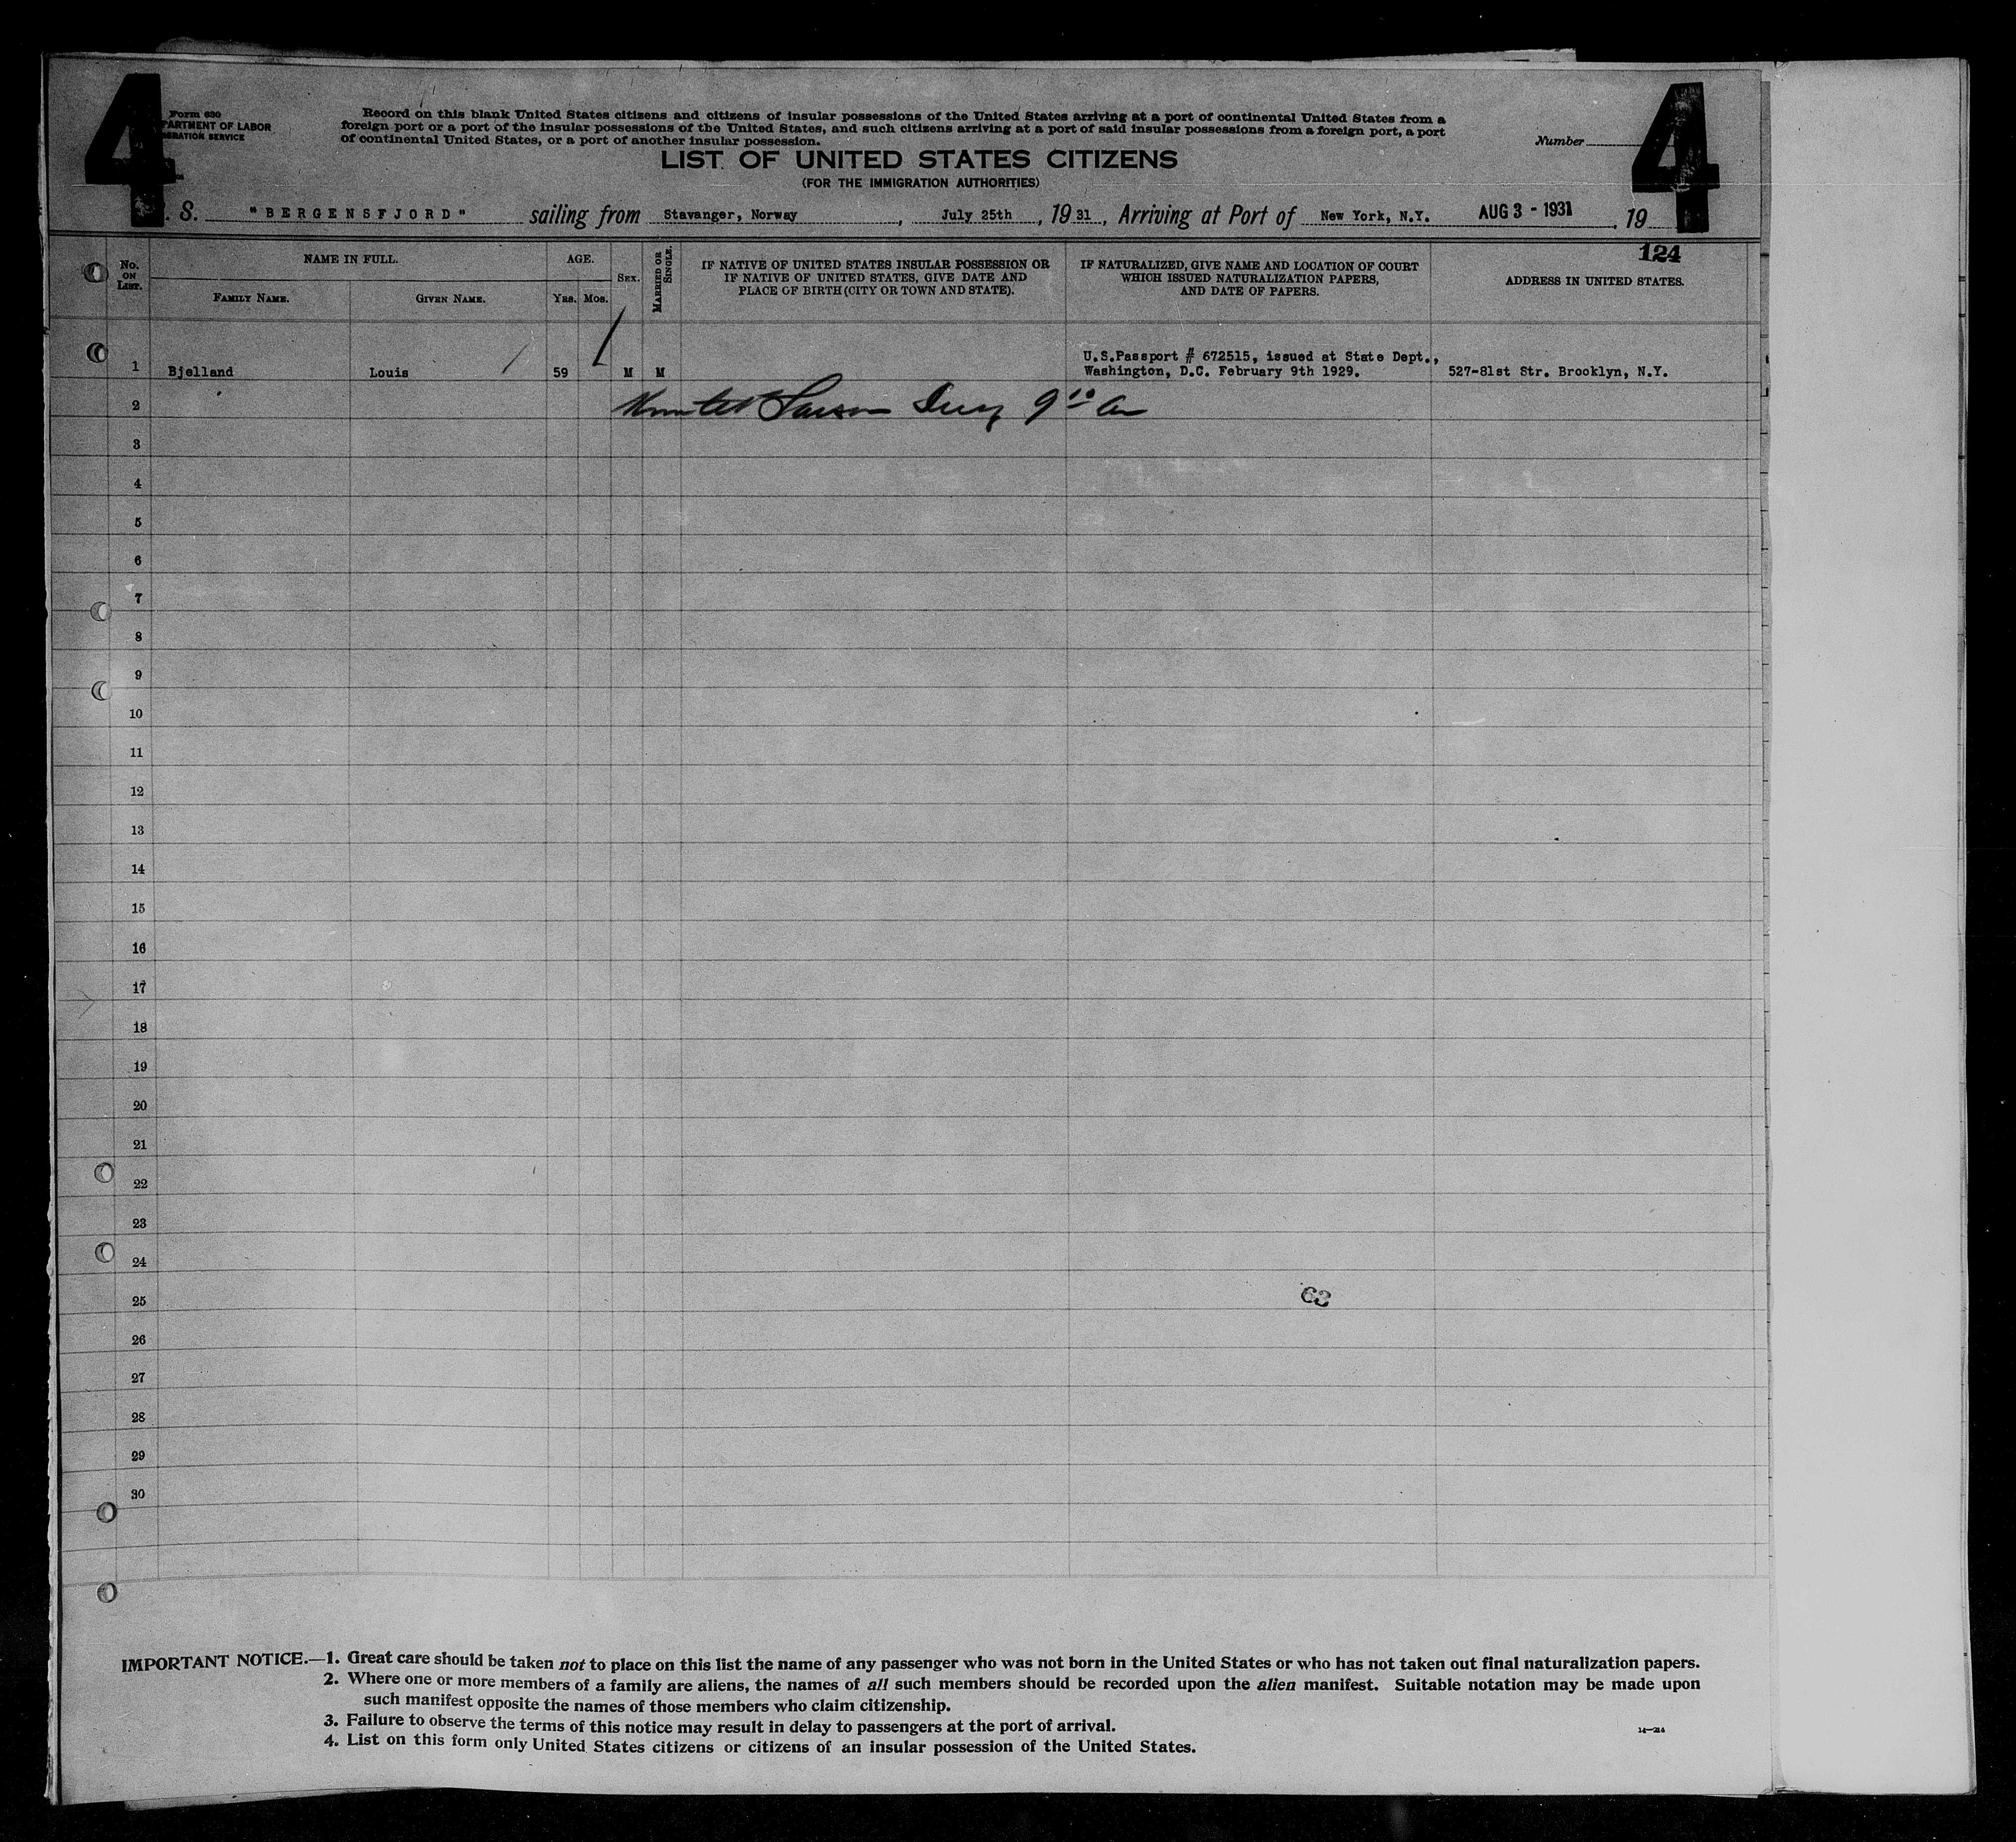 4
4
Form 630
DEPARTMENT OF LABOR
IMMIGRATION SERVICE
Record on this blank United States citizens and citizens of insular possessions of the United States arriving at a port of continental United States from a
foreign port or a port of the insular possessions of the United States, and such citizens arriving at a port of said insular possessions from a foreign port, a port
of continental United States, or a port of another insular possession.
Number
LIST OF UNITED STATES CITIZENS
(FOR THE IMMIGRATION AUTHORITIES)
S. "BERGENSFJORD" sailing from Stavanger, Norway, July 25th, 1931, Arriving at Port of New York, N.Y. AUG 3 - 1931, 19
124
No. ON LIST.
NAME IN FULL.
FAMILY NAME.
GIVEN NAME.
AGE.
YRS. MOS.
SEX.
MARRIED OR SINGLE.
IF NATIVE OF UNITED STATES INSULAR POSSESSION OR
IF NATIVE OF UNITED STATES, GIVE DATE AND
PLACE OF BIRTH (CITY OR TOWN AND STATE).
IF NATURALIZED, GIVE NAME AND LOCATION OF COURT
WHICH ISSUED NATURALIZATION PAPERS,
AND DATE OF PAPERS.
ADDRESS IN UNITED STATES.
1 Bjelland Louis 59 M M
U.S.Passport # 672515, issued at State Dept.,
Washington, D.C. February 9th 1929.
527-81st Str. Brooklyn, N.Y.
2
3
4
5
6
7
8
9
10
11
12
13
14
15
16
17
18
19
20
21
22
23
24
25
63
26
27
28
29
30
IMPORTANT NOTICE.—1. Great care should be taken not to place on this list the name of any passenger who was not born in the United States or who has not taken out final naturalization papers.
2. Where one or more members of a family are aliens, the names of all such members should be recorded upon the alien manifest. Suitable notation may be made upon
such manifest opposite the names of those members who claim citizenship.
3. Failure to observe the terms of this notice may result in delay to passengers at the port of arrival.
4. List on this form only United States citizens or citizens of an insular possession of the United States.
14—214